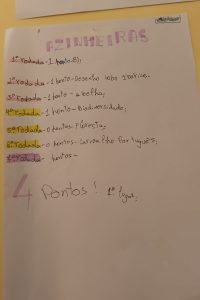 AZINHEIRAS
1ª rodada - 1 ponto
2ª rodada - 1 ponto - Desenho lobo ibérico.
3ª rodada - 1 ponto - abelha;
4ª rodada - 1 ponto - Biodiversidade;
5ª rodada - 0 pontos - Floresta;
6ª rodada - 0 pontos - carvalho português;
7ª rodada - pontos -
4 Pontos! 1º lugar;